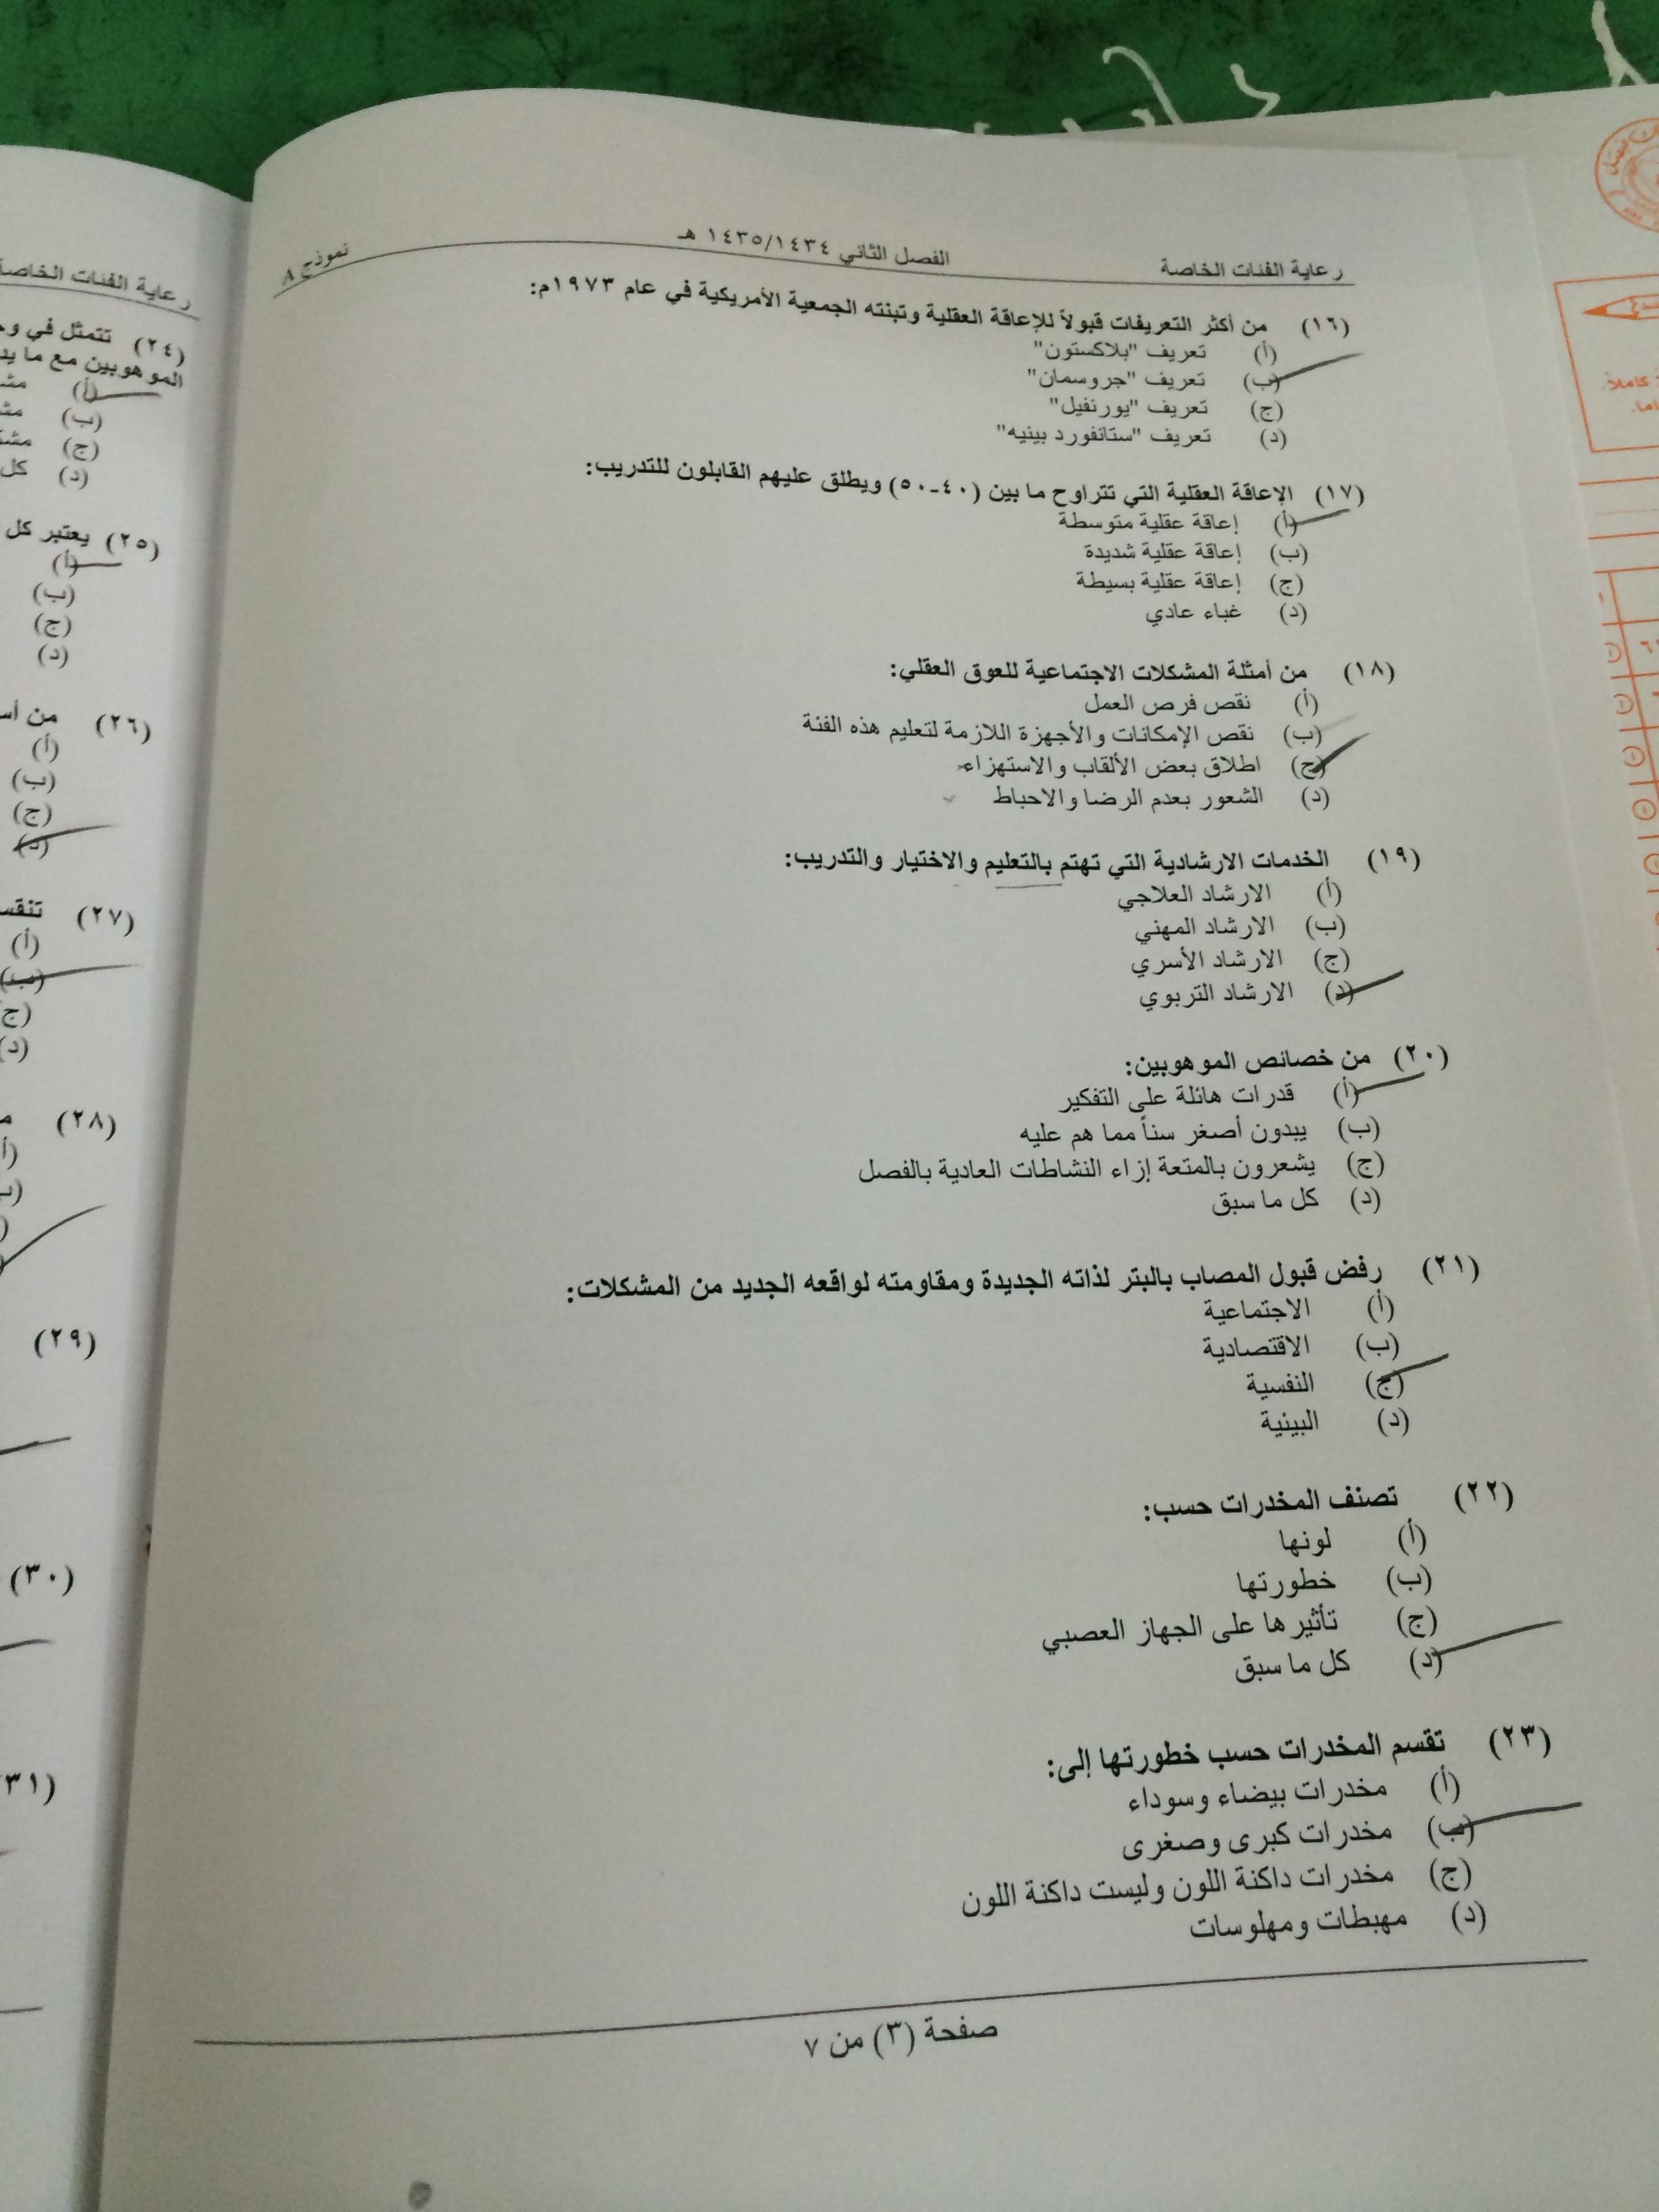 رعاية الفئات الخاصة
الفصل الثاني ١٤٣٥/١٤٣٤ هـ
نموذج A
(١٦) من أكثر التعريفات قبولاً للإعاقة العقلية وتبنته الجمعية الأمريكية في عام ١٩٧٣م:
(أ) تعريف "بلاكستون"
(ب) تعريف "جروسمان"
(ج) تعريف "يورنفيل"
(د) تعريف "ستانفورد بينيه"
(١٧) الإعاقة العقلية التي تتراوح ما بين (٤٠-٥٠) ويطلق عليهم القابلون للتدريب:
(أ) إعاقة عقلية متوسطة
(ب) إعاقة عقلية شديدة
(ج) إعاقة عقلية بسيطة
(د) غباء عادي
(١٨) من أمثلة المشكلات الاجتماعية للعوق العقلي:
(أ) نقص فرص العمل
(ب) نقص الإمكانات والأجهزة اللازمة لتعليم هذه الفئة
(ج) اطلاق بعض الألقاب والاستهزاء
(د) الشعور بعدم الرضا والاحباط
(١٩) الخدمات الارشادية التي تهتم بالتعليم والاختيار والتدريب:
(أ) الارشاد العلاجي
(ب) الارشاد المهني
(ج) الارشاد الأسري
(د) الارشاد التربوي
(٢٠) من خصائص الموهوبين:
(أ) قدرات هائلة على التفكير
(ب) يبدون أصغر سناً مما هم عليه
(ج) يشعرون بالمتعة إزاء النشاطات العادية بالفصل
(د) كل ما سبق
(٢١) رفض قبول المصاب بالبتر لذاته الجديدة ومقاومته لواقعه الجديد من المشكلات:
(أ) الاجتماعية
(ب) الاقتصادية
(ج) النفسية
(د) البيئية
(٢٢) تصنف المخدرات حسب:
(أ) لونها
(ب) خطورتها
(ج) تأثيرها على الجهاز العصبي
(د) كل ما سبق
(٢٣) تقسم المخدرات حسب خطورتها إلى:
(أ) مخدرات بيضاء وسوداء
(ب) مخدرات كبرى وصغرى
(ج) مخدرات داكنة اللون وليست داكنة اللون
(د) مهبطات ومهلوسات
صفحة (٣) من ٧
رعاية الفئات الخاصة
(٢٤) تتمثل في
الموهوبين مع ما
(أ)
(ب)
(ج)
(د) كل
(٢٥) يعتبر كل
(أ)
(ب)
(ج)
(د)
(٢٦) من
(أ)
(ب)
(ج)
(د)
(٢٧)
(أ)
(ب)
(ج)
(د)
(٢٨)
(٢٩)
(٣٠)
(٣١)